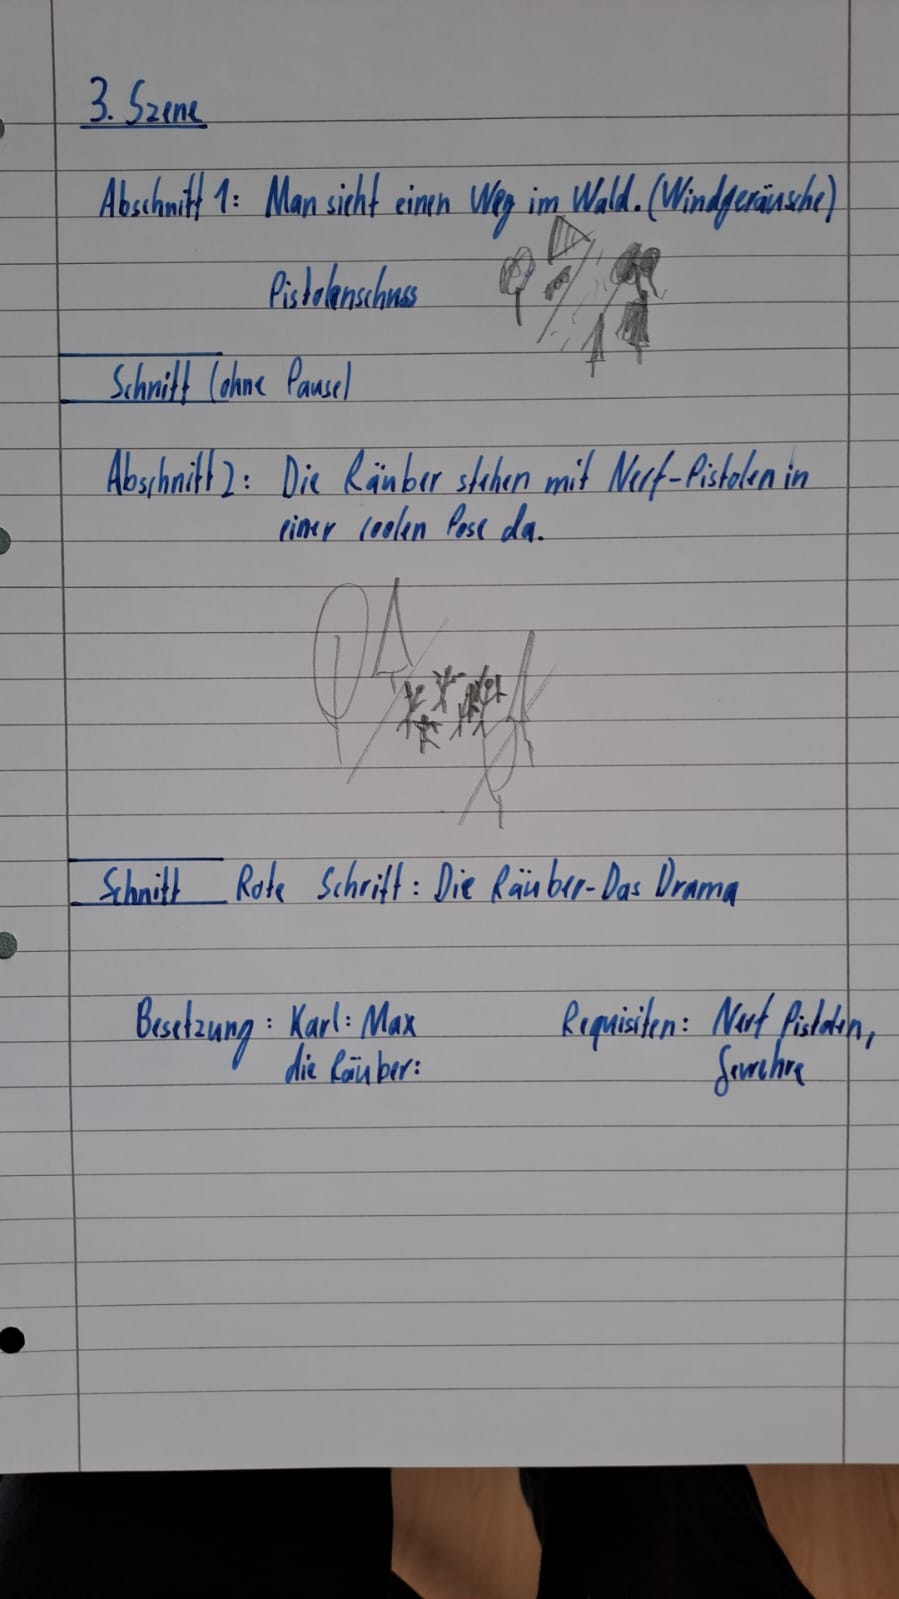 3. Szene
Abschnitt 1: Man sieht einen Weg im Wald. (Windgeräusche)
Pistolenschuss
Schnitt (ohne Pause)
Abschnitt 2: Die Räuber stehen mit Nerf-Pistolen in
einer coolen Pose da.
Schnitt Rote Schrift: Die Räuber-Das Drama
Besetzung: Karl: Max Requisiten: Nerf Pistolen,
die Räuber: Gewehre